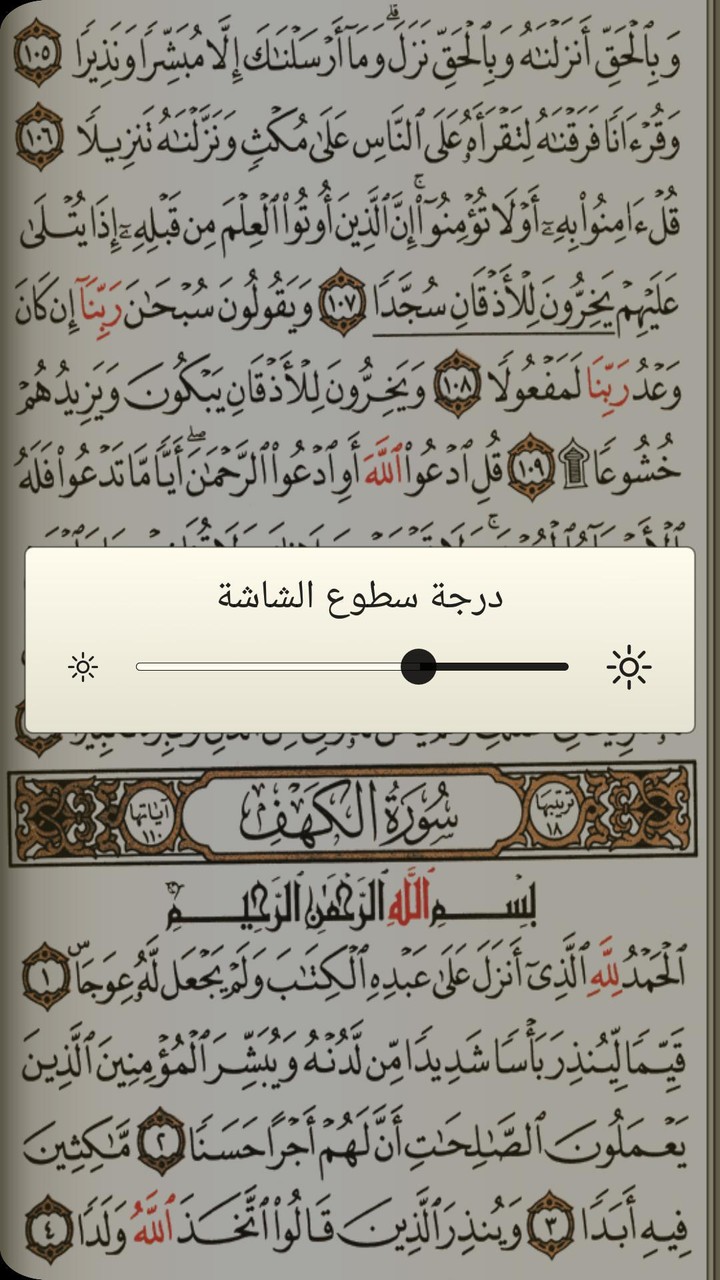 وَبِٱلْحَقِّ أَنزَلْنَٰهُ وَبِٱلْحَقِّ نَزَلَ ۗ وَمَآ أَرْسَلْنَٰكَ إِلَّا مُبَشِّرًا وَنَذِيرًا ١٠٥
وَقُرْءَانًا فَرَقْنَٰهُ لِتَقْرَأَهُۥ عَلَى ٱلنَّاسِ عَلَىٰ مُكْثٍ وَنَزَّلْنَٰهُ تَنزِيلًا ١٠٦
قُلْ ءَامِنُوا۟ بِهِۦٓ أَوْ لَا تُؤْمِنُوٓا۟ ۚ إِنَّ ٱلَّذِينَ أُوتُوا۟ ٱلْعِلْمَ مِن قَبْلِهِۦٓ إِذَا يُتْلَىٰ
عَلَيْهِمْ يَخِرُّونَ لِلْأَذْقَانِ سُجَّدًا ١٠٧ وَيَقُولُونَ سُبْحَٰنَ رَبِّنَآ إِن كَانَ
وَعْدُ رَبِّنَا لَمَفْعُولًا ١٠٨ وَيَخِرُّونَ لِلْأَذْقَانِ يَبْكُونَ وَيَزِيدُهُمْ
خُشُوعًا ۩ ١٠٩ قُلِ ٱدْعُوا۟ ٱللَّهَ أَوِ ٱدْعُوا۟ ٱلرَّحْمَٰنَ ۖ أَيًّا مَّا تَدْعُوا۟ فَلَهُ
درجة سطوع الشاشة
تَرتيبها ١٨
سُورَةُ الكَهْفِ
آيَاتها ١١٠
بِسْمِ ٱللَّهِ ٱلرَّحْمَٰنِ ٱلرَّحِيمِ
ٱلْحَمْدُ لِلَّهِ ٱلَّذِىٓ أَنزَلَ عَلَىٰ عَبْدِهِ ٱلْكِتَٰبَ وَلَمْ يَجْعَل لَّهُۥ عِوَجَاۜ ١
قَيِّمًا لِّيُنذِرَ بَأْسًا شَدِيدًا مِّن لَّدُنْهُ وَيُبَشِّرَ ٱلْمُؤْمِنِينَ ٱلَّذِينَ
يَعْمَلُونَ ٱلصَّٰلِحَٰتِ أَنَّ لَهُمْ أَجْرًا حَسَنًا ٢ مَّٰكِثِينَ
فِيهِ أَبَدًا ٣ وَيُنذِرَ ٱلَّذِينَ قَالُوا۟ ٱتَّخَذَ ٱللَّهُ وَلَدًا ٤